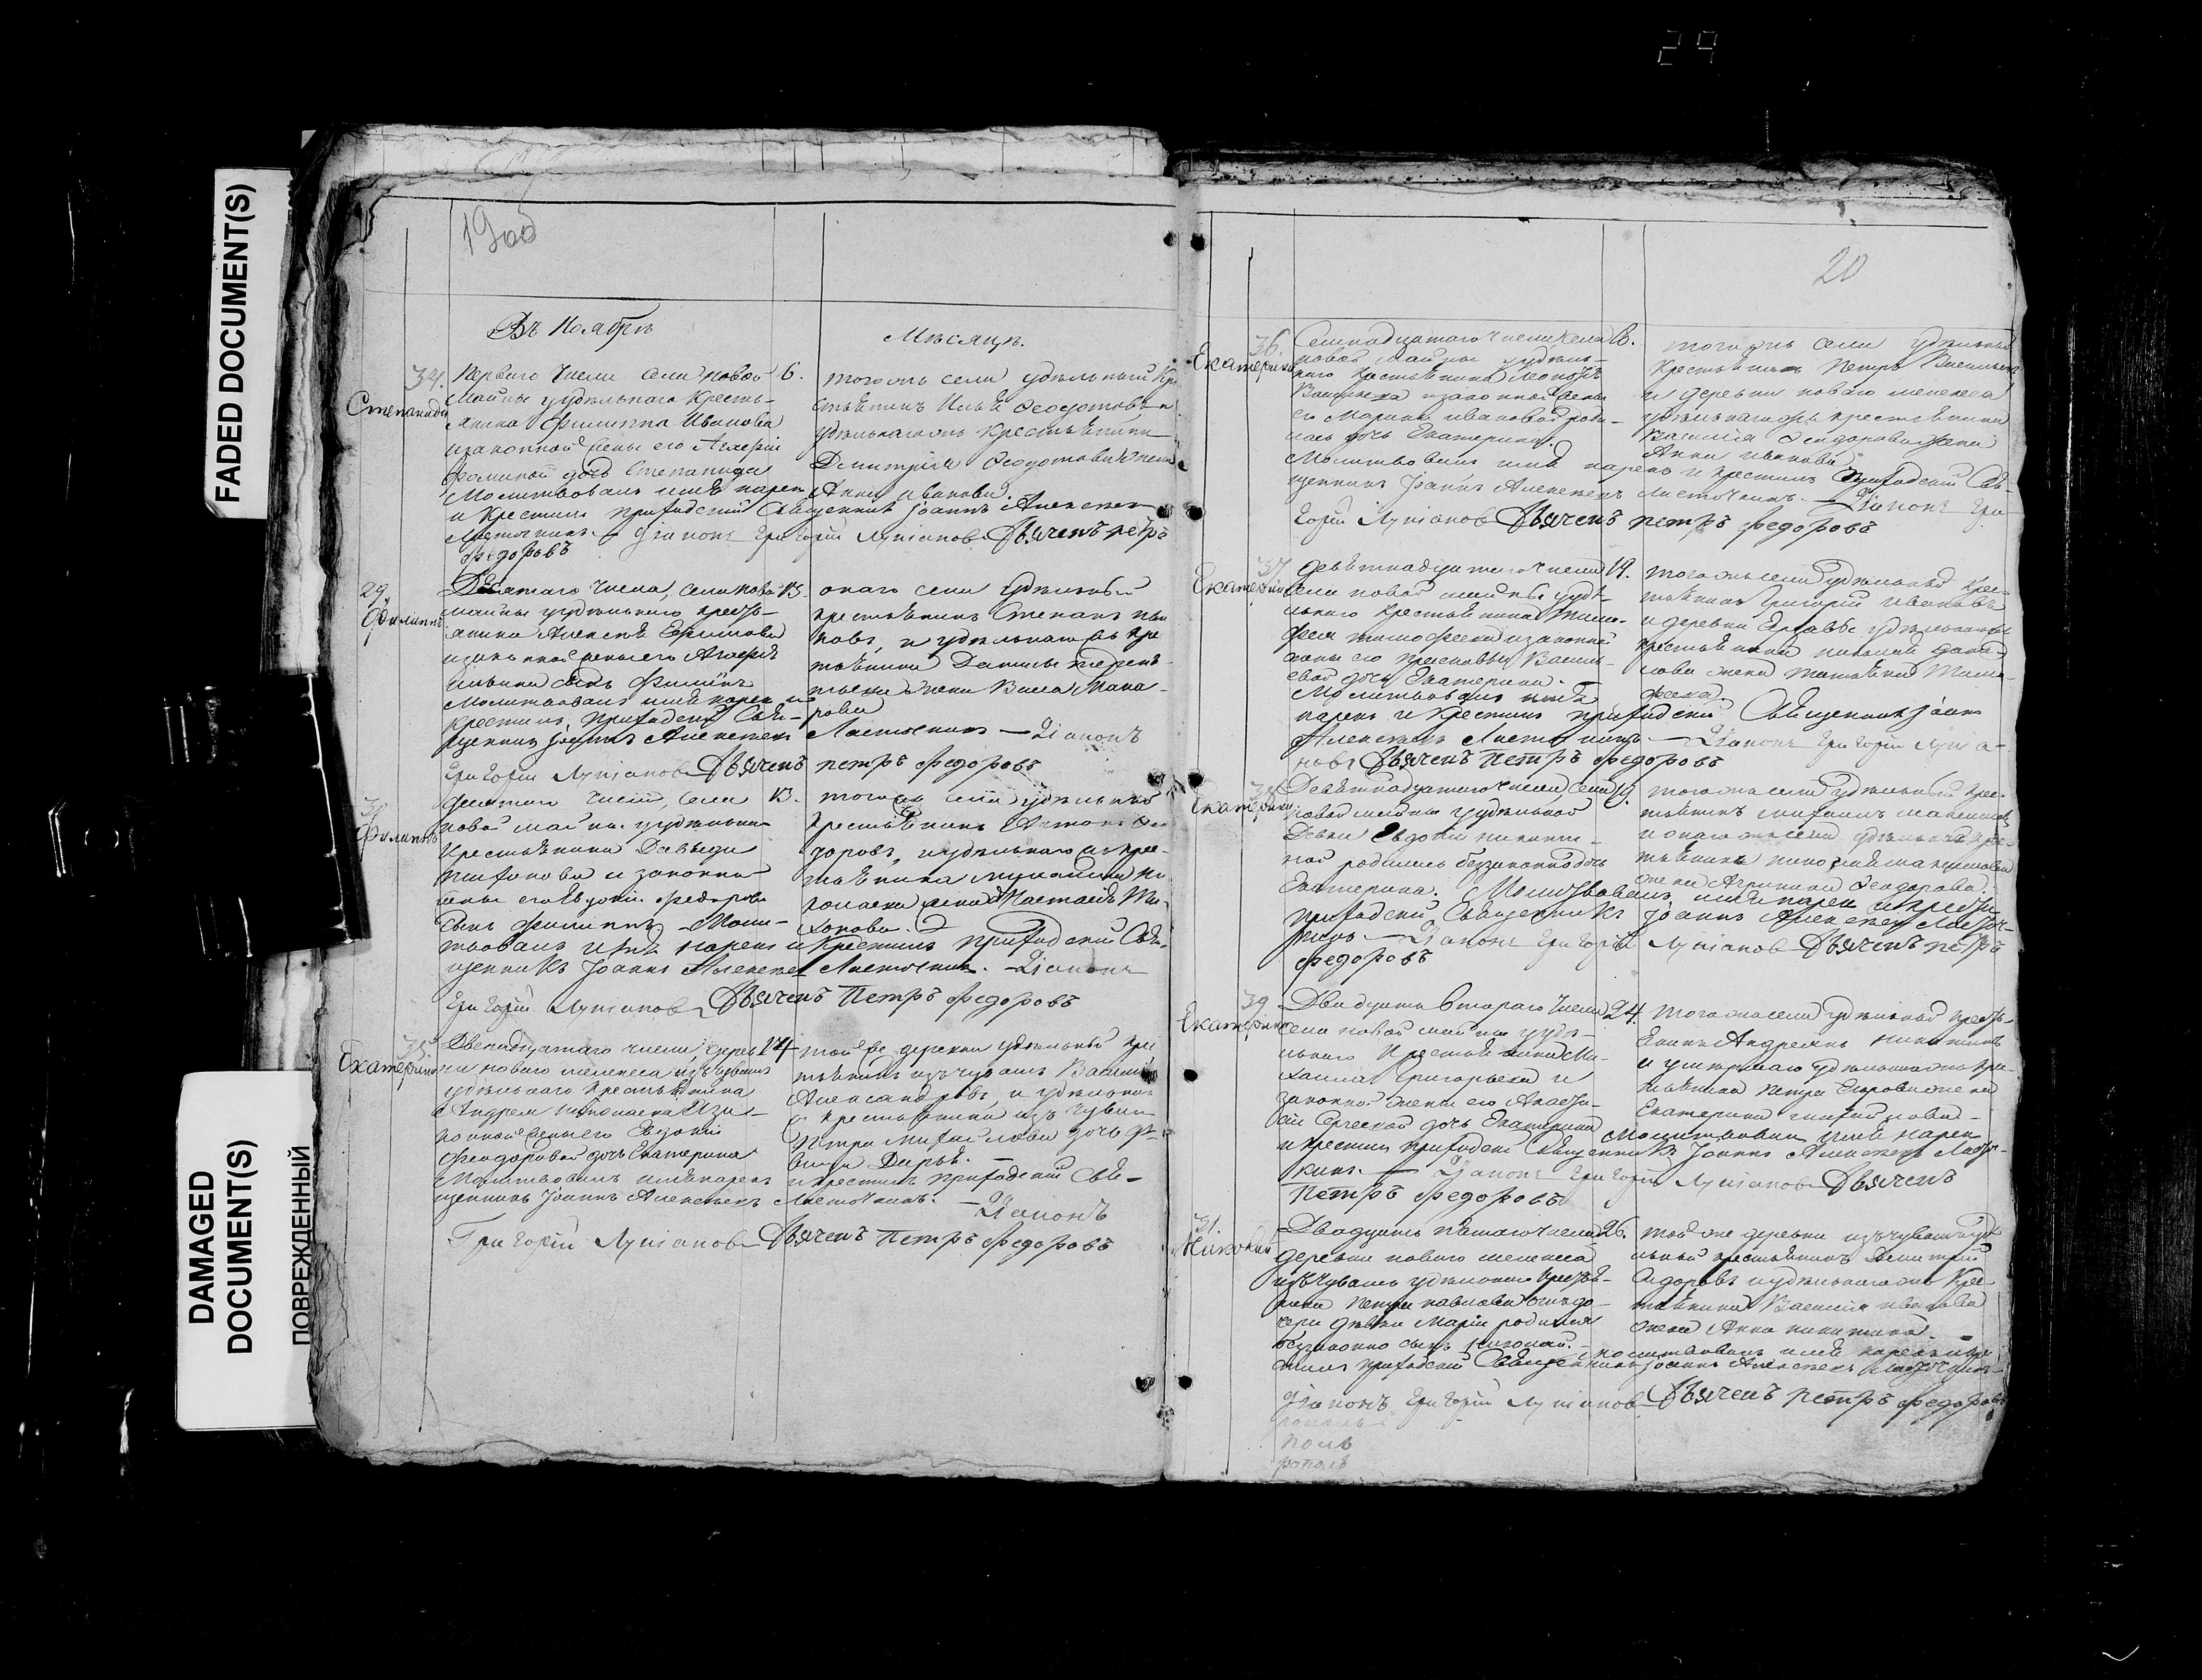 29
FADED DOCUMENT(S)
DAMAGED
DOCUMENT(S)
ПОВРЕЖДЕННЫЙ
19об
Въ Ноябрѣ
Мѣсяцѣ.
34.
Степанида
Перваго числа села новой
Майны удѣльнаго кресть-
янина Филиппа Иванова
изаконной жены его Агафiи
дочь Степанида
Молитвовалъ имя нарекъ
и крестилъ приходскiй Священникъ Iоаннъ Алексеевъ
Ласточкинъ. Дiаконъ Григорiй Лукiановъ Дьячекъ петръ
федоровъ
6.
тогожъ села удѣльный кре
стьянинъ Илья Феодотовъ и
удѣльнагожъ крестьянина
Димитрiя Феодотова жена
Анна иванова.
29.
Филиппъ
Девятаго числа, села новой
майны удѣльнаго кресть-
янина Алексея Ефимова
изаконной жены его Агафiи
сынъ Филипъ
Молитвовалъ имя нарекъ и
крестилъ, приходскiй Свя-
щенникъ Iоаннъ Алексеевъ Ласточкинъ — Дiаконъ
Григорiй Лукiановъ Дьячекъ петръ федоровъ
13.
онаго села удѣльный
крестьянинъ Степанъ ива
новъ, и удѣльнагожъ кре
стьянина Данилы терень
тьева жена Васса Мака-
рова
30
Филиппъ
Девятаго числа, села
новой майны удѣльнаго
Крестьянина Давыда
законной
жены его Евдокiи федоровой
сынъ филиппъ Моли-
твовалъ имя нарекъ и крестилъ приходскiй Свя-
щенникъ Iоаннъ Алексеевъ Ласточкинъ. — Дiаконъ
Григорiй Лукiановъ Дьячекъ Петръ федоровъ
13.
тогожъ села удѣльный
крестьянинъ Антонъ Фе
доровъ, и удѣльнагожъ кре-
стьянина
жена Настасья Ти-
хонова.
35.
Екатерина
Двенадцатаго числа, дерев
ни новаго мелекеса изъ чувашъ
удѣльнаго крестьянина
Андрея николаева Иза-
конной жены его Евдокiи
Феодоровой дочь Екатерина
Молитвовалъ имя нарекъ и крестилъ приходскiй Свя-
щенникъ Iоаннъ Алексеевъ Ласточкинъ. — Дiаконъ
Григорiй Лукiановъ Дьячекъ Петръ Федоровъ
14
той же деревни удѣльный кре
стьянинъ изъ чувашъ Василiй
Александровъ, и удѣльнаго
крестьянина изъ чувашъ
Петра Михайлова дочь дѣ-
вица Дарья.
20
36.
Екатерина
Семнадцатаго числа села
новой Майны удѣль-
наго крестьянина
Васильева изаконной жены
его Марины ивановой роди-
лась дочь Екатерина.
Молитвовалъ имя нарекъ и крестилъ Приходскiй Свя-
щенникъ Iоаннъ Алексеевъ Ласточкинъ. — Дiаконъ Гри
горiй Лукiановъ Дьячекъ петръ федоровъ
18.
тогожъ села удѣльной
крестьянинъ Петръ Васильевъ
и деревни новаго мелекеса
удѣльнагожъ крестьянина
Василiя Феодорова жена
Анна иванова
37
Екатерина
девятнадцатаго числа
села новой майны удѣ-
льнаго крестьянина Тимо-
фея тимофеева изаконной
жены его прасковьи Василь-
евой дочь Екатерина.
Молитвовалъ имя
нарекъ и крестилъ приходскiй Священникъ Iоаннъ
Алексеевъ Ласточкинъ — Дiаконъ Григорiй Лукiа-
новъ Дьячекъ Петръ федоровъ
19.
тогожъ села удѣльной кре-
стьянинъ Григорiй Ивановъ
и деревни удѣльнагожъ
крестьянина николая дани-
лова жена татьяна Тимо-
феева
38
Екатерина
Девятнадцатаго числа, села
новой майны удѣльной
Девки Евдокiи никити-
ной родилась беззаконно дочь
Екатерина. Молитвовалъ имя нарекъ и крестилъ
приходскiй Священникъ Iоаннъ Алексеевъ Ласточ-
кинъ. — Дiаконъ Григорiй Лукiановъ Дьячекъ петръ
федоровъ
19.
тогожъ села удѣльный кре-
стьянинъ михаилъ
и онагожъ села удѣльнаго кре-
стьянина
жена Агрипина Феодорова.
39
Екатерина
Двадцать втораго числа
села новой майны удѣ-
льнаго Крестьянина Ми-
хаила Григорьева и
законной жены его Агафi-
и Сергеевой дочь Екатерина
Молитвовалъ имя нарекъ
и крестилъ приходскiй Священникъ Iоаннъ Алексеевъ Ласточ-
кинъ. — Дiаконъ Григорiй Лукiановъ Дьячекъ
Петръ федоровъ
24.
тогожъ села удѣльной кресть-
янинъ Андреянъ никитинъ
и умершаго удѣльнагожъ кре-
стьянина петра Егорова жена
Екатерина
31.
Николай
Двадцать пятаго числа
деревни новаго мелекеса
изъ чувашъ удѣльнаго крестья-
нина петра павлова отъ до-
чери дѣвки Марiи родился
беззаконно сынъ николай.
Молитвовалъ имя нарекъ и кре
стилъ приходскiй Священникъ Iоаннъ Алексеевъ Ласточкинъ
Дiаконъ Григорiй Лукiановъ Дьячекъ петръ федоровъ
26.
той же деревни изъ чувашъ удѣ
льный крестьянинъ Димитрiй
Сидоровъ и удѣльнагожъ кре-
стьянина Василiя иванова
жена Анна никитина.